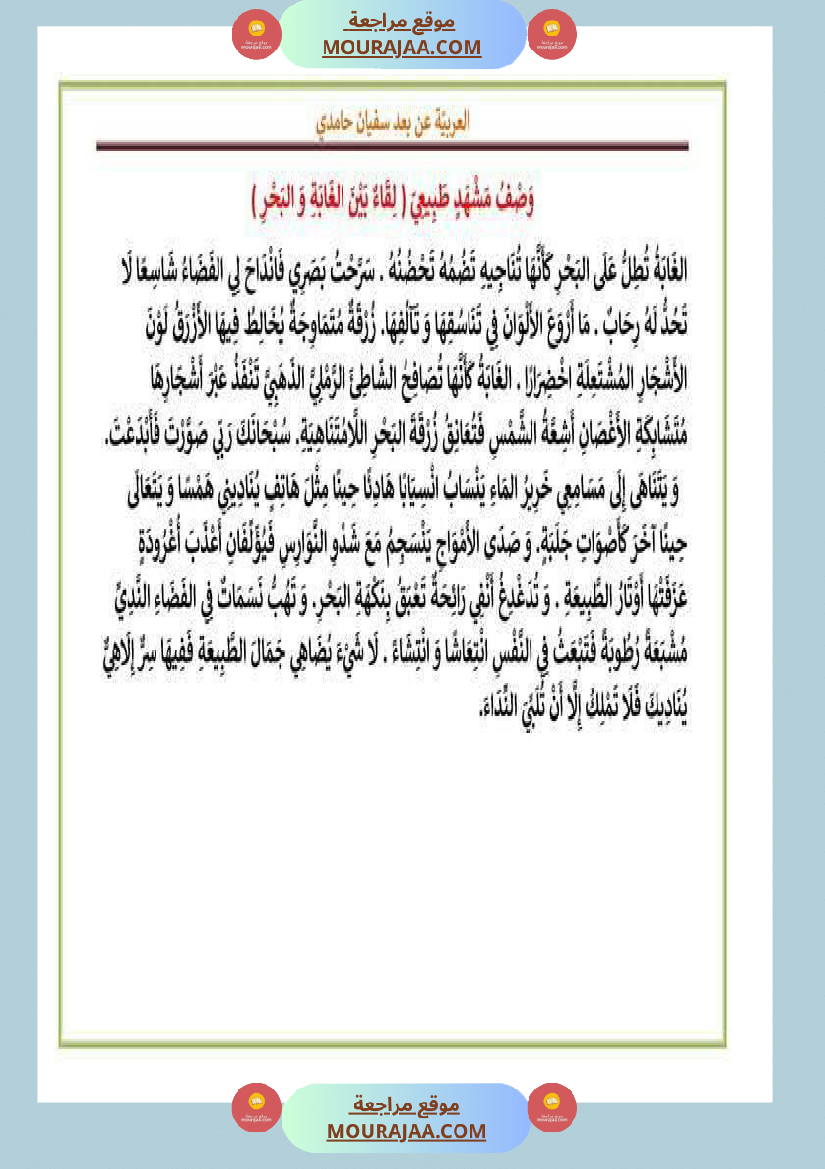 موقع مراجعة
MOURAJAA.COM
العربيّة عن بعد سفيان حامدي
وَصْفُ مَشْهَدٍ طَبِيعِيّ ( لِقَاءٌ بَيْنَ الغَابَةِ وَ البَحْرِ )
الغَابَةُ تُطِلُّ عَلَى البَحْرِ كَأَنَّهَا تُنَاجِيهِ تَضُمُهُ تَحْضُنُهُ . سَرَّحْتُ بَصَرِي فَانْدَاحَ لِي الفَضَاءُ شَاسِعًا لَا
تَحُدُّ لَهُ رِحَابٌ . مَا أَرْوَعَ الأَلْوَانَ فِي تَنَاسُقِهَا وَ تَآلُفِهَا. زُرْقَةٌ مُتَمَاوِجَةٌ يُخَالِطُ فِيهَا الأَزْرَقُ لَوْنَ
الأَشْجَارِ المُشْتَعِلَةِ اخْضِرَارًا . الغَابَةُ كَأَنَّهَا تُصَافِحُ الشَّاطِئَ الرَّمْلِيَّ الذَّهَبِيَّ تَنْفَذُ عَبْرَ أَشْجَارِهَا
مُتَشَابِكَةِ الأَغْصَانِ أَشِعَّةُ الشَّمْسِ فَتُعَانِقُ زُرْقَةَ البَحْرِ اللَّامُتَنَاهِيَةِ. سُبْحَانَكَ رَبِّي صَوَّرْتَ فَأَبْدَعْتَ.
وَ يَتَنَاهَى إِلَى مَسَامِعِي خَرِيرُ المَاءِ يَنْسَابُ انْسِيَابًا هَادِئًا حِينًا مِثْلَ هَاتِفٍ يُنَادِينِي هَمْسًا وَ يَتَعَالَى
حِينًا آخَرَ كَأَصْوَاتِ جَلَبَةٍ. وَ صَدَى الأَمْوَاجِ يَنْسَجِمُ مَعَ شَدْوِ النَّوَارِسِ فَيُؤَلِّفَانِ أَعْذَبَ أُغْرُودَةٍ
عَزَفَتْهَا أَوْتَارُ الطَّبِيعَةِ . وَ تُدَغْدِغُ أَنْفِي رَائِحَةٌ تَعْبَقُ بِنَكْهَةِ البَحْرِ. وَ تَهُبُّ نَسَمَاتٌ فِي الفَضَاءِ النَّدِيِّ
مُشْبَعَةً رُطُوبَةً فَتَبْعَثُ فِي النَّفْسِ انْتِعَاشًا وَ انْتِشَاءً . لَا شَيْءَ يُضَاهِي جَمَالَ الطَّبِيعَةِ فَفِيهَا سِرٌّ إِلَاهِيٌّ
يُنَادِيكَ فَلَا تَمْلِكُ إِلَّا أَنْ تُلَبِّيَ النِّدَاءَ.
موقع مراجعة
MOURAJAA.COM